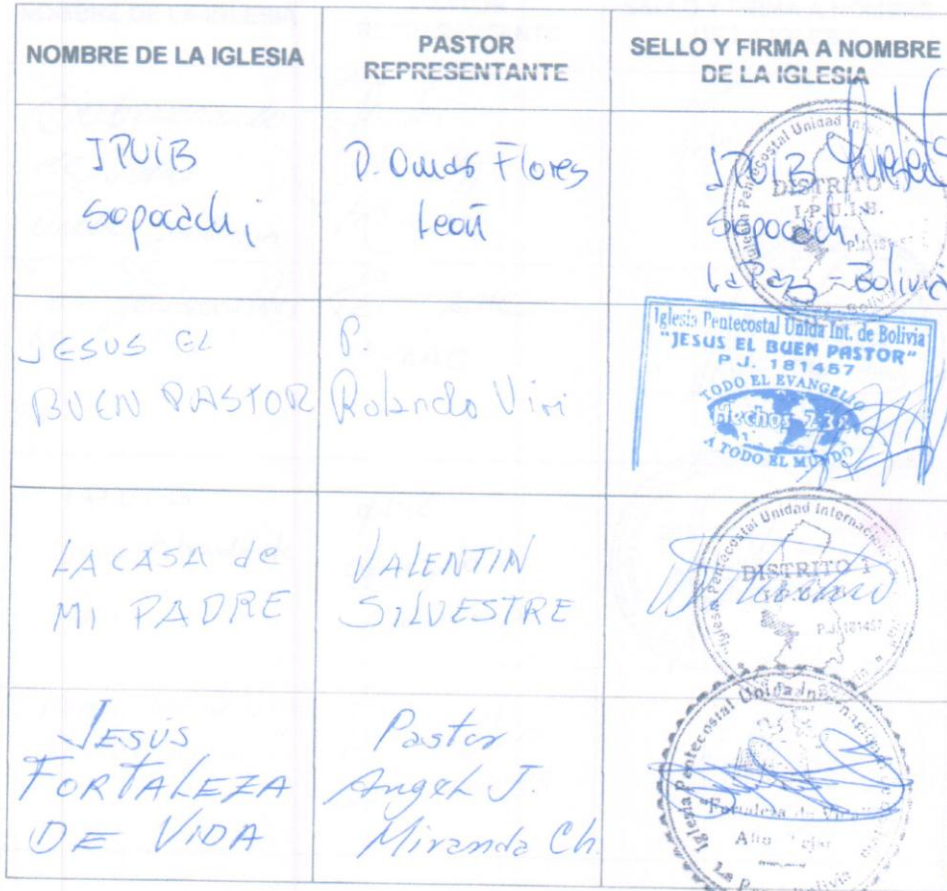 NOMBRE DE LA IGLESIA
PASTOR
REPRESENTANTE
SELLO Y FIRMA A NOMBRE
DE LA IGLESIA
IPUIB
Sopocachi
P. Omar Flores
León
IPUIB
Sopocachi
La Paz - Bolivia
Iglesia Pentecostal Unidad
DISTRITO 1
I.P.U.I.B.
JESUS EL
BUEN PASTOR
P.
Rolando Viri
Iglesia Pentecostal Unida Int. de Bolivia
"JESUS EL BUEN PASTOR"
P.J. 181457
TODO EL EVANGELIO
Hechos 2:38
A TODO EL MUNDO
LA CASA de
MI PADRE
VALENTIN
SILVESTRE
Iglesia Pentecostal Unidad Internacional
DISTRITO 1
P.J. 181457
JESÚS
FORTALEZA
DE VIDA
Pastor
Angel J.
Miranda Ch.
Iglesia Pentecostal Unida Internacional
"Fortaleza de Vida"
Alto
La Paz - Bolivia